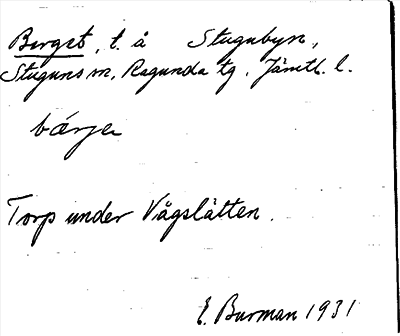 Berget, t. å Stugubyn,
Stuguns sn, Ragunda tg, Jämtl. l.
bærje
Torp under Vågslåtten.
E. Burman 1931